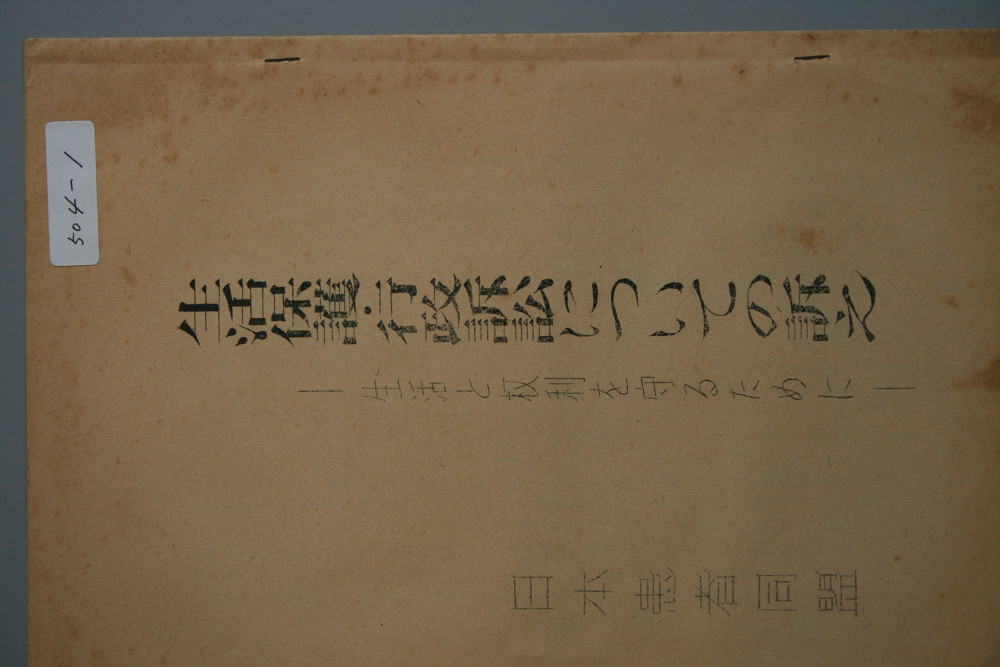 504-1
生活保護・行政訴訟についての訴え
―生活と权利を守るために―
日本患者同盟